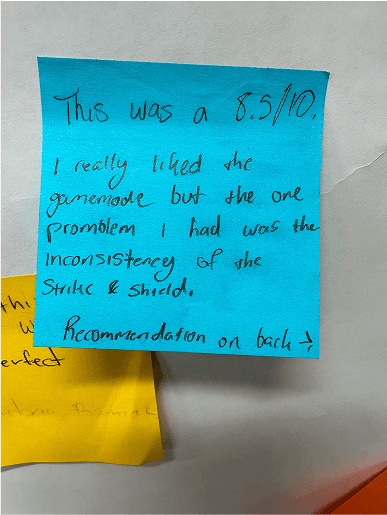 This was a 8.5/10.
I really liked the
gamemode but the one
promblem I had was the
inconsistency of the
Strike & shield.
Recommendation on back →
thi
W
erfect